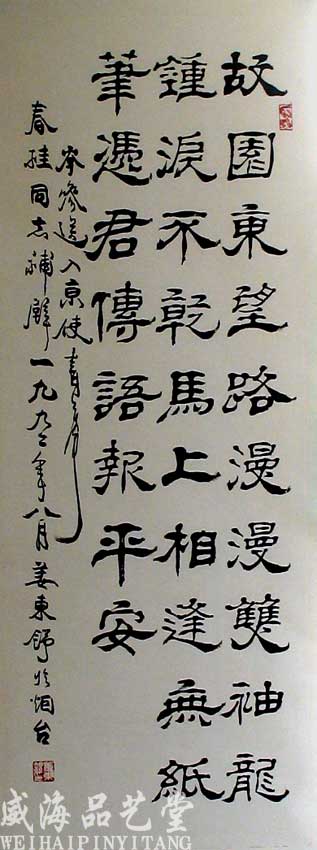 故園東望路漫漫雙袖龍
鍾淚不乾馬上相逢無紙
筆憑君傳語報平安
岑參送入京使
春桂同志補壁一九九二年八月姜東舒於烟台
威海品艺堂
WEIHAIPINYITANG